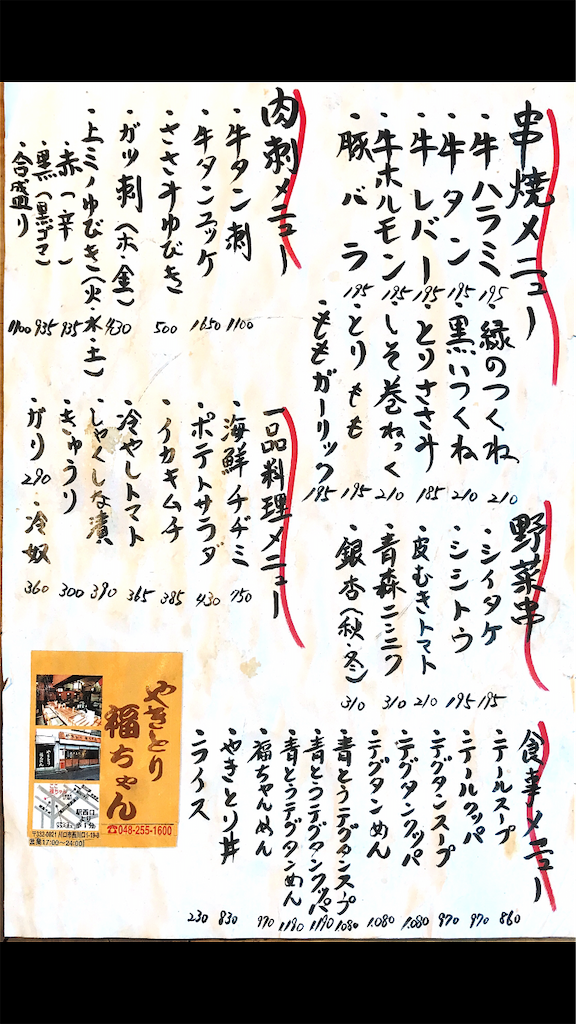 串焼メニュー
・牛ハラミ 195
・牛タン 195
・牛レバー 195
・牛ホルモン 195
・豚バラ 195
・緑のつくね 210
・黒いつくね 210
・とりささみ 185
・しそ巻ねっく 210
・とりもも 195
・ももガーリック 195
野菜串
・シイタケ 195
・シシトウ 195
・皮むきトマト 210
・青森ニンニク 310
・銀杏(秋・冬) 310
食事メニュー
・テールスープ 860
・テールクッパ 970
・テグタンスープ 970
・テグタンクッパ 1.080
・テグタンめん 1.080
・青とうテグタンスープ 1080
・青とうテグタンクッパ 1190
・青とうテグタンめん 1190
・福ちゃんめん 970
・やきとり丼 830
・ライス 230
肉刺メニュー
・牛タン刺 1100
・牛タンユッケ 1650
・ささみゆびき 500
・ガツ刺(木・金) 430
・上ミノゆびき(火・水・土)
・赤(辛) 935
・黒(黒ゴマ) 935
・合盛り 1100
一品料理メニュー
・海鮮チヂミ 750
・ポテトサラダ 430
・イカキムチ 385
・冷やしトマト 365
・しゃくしな漬 390
・きゅうり 300
・ガリ 290
・冷奴 360
やきとり
福ちゃん
☎048-255-1600
駅西口
営業17:00〜24:00